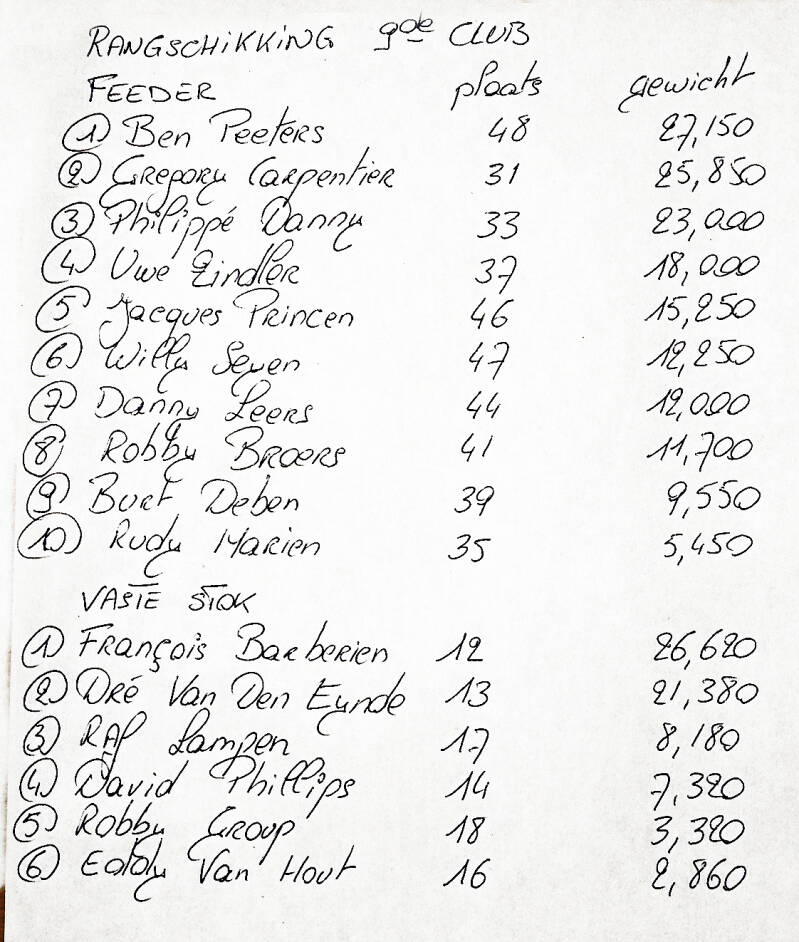 RANGSCHIKKING 9de CLUB
FEEDER plaats gewicht
1 Ben Peeters 48 27,150
2 Gregory Carpentier 31 25,850
3 Philippé Danny 33 23,000
4 Uwe Zindler 37 18,000
5 Jacques Princen 46 15,250
6 Willy Seyen 47 12,250
7 Danny Leers 44 12,000
8 Robby Broers 41 11,700
9 Burt Deben 39 9,550
10 Rudy Marien 35 5,450
VASTE STOK
1 François Barberien 12 26,620
2 Dré Van Den Eynde 13 21,380
3 RAf Lampen 17 8,180
4 David Phillips 14 7,320
5 Robby Group 18 3,320
6 Eddy Van Hout 16 2,860